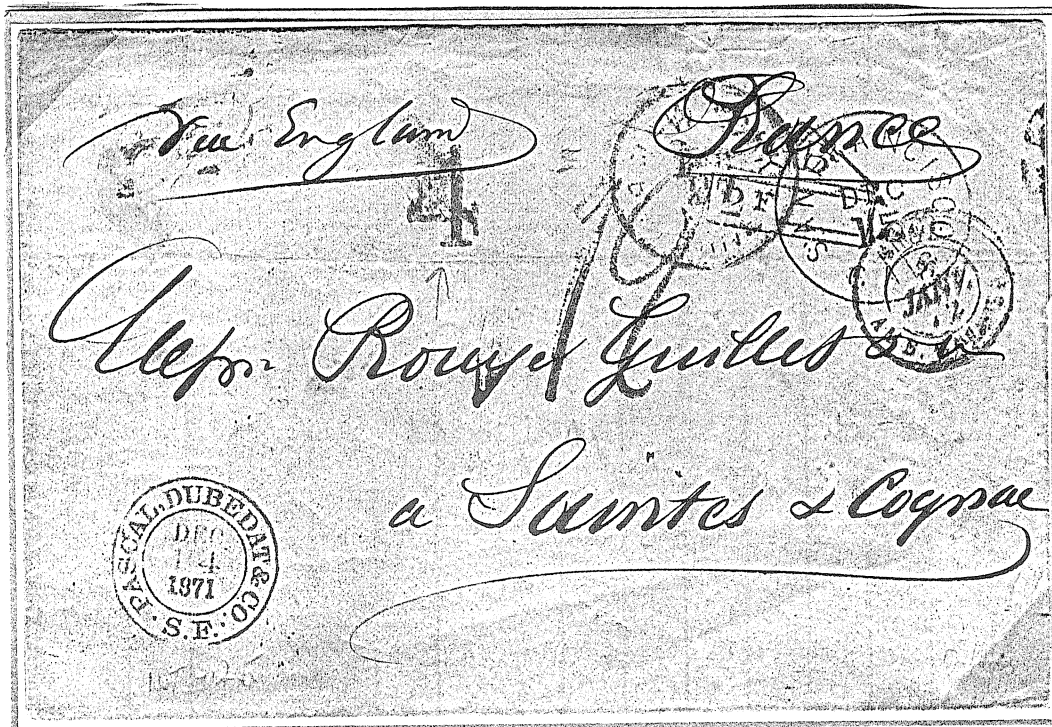 via England
France
4
DEC
15
JANV
Rouyer Guillet & Co
a Saintes & Cognac
PASCAL, DUBEDAT & CO.
DEC
14
1871
S.F.